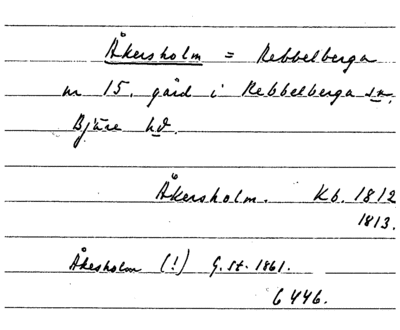 Åkersholm = Rebbelberga
nr 15. gård i Rebbelberga sn.
Bjäre hd.
Åkersholm. Kb. 1812
1813.
Åkesholm (!) G.st. 1861.
6446.